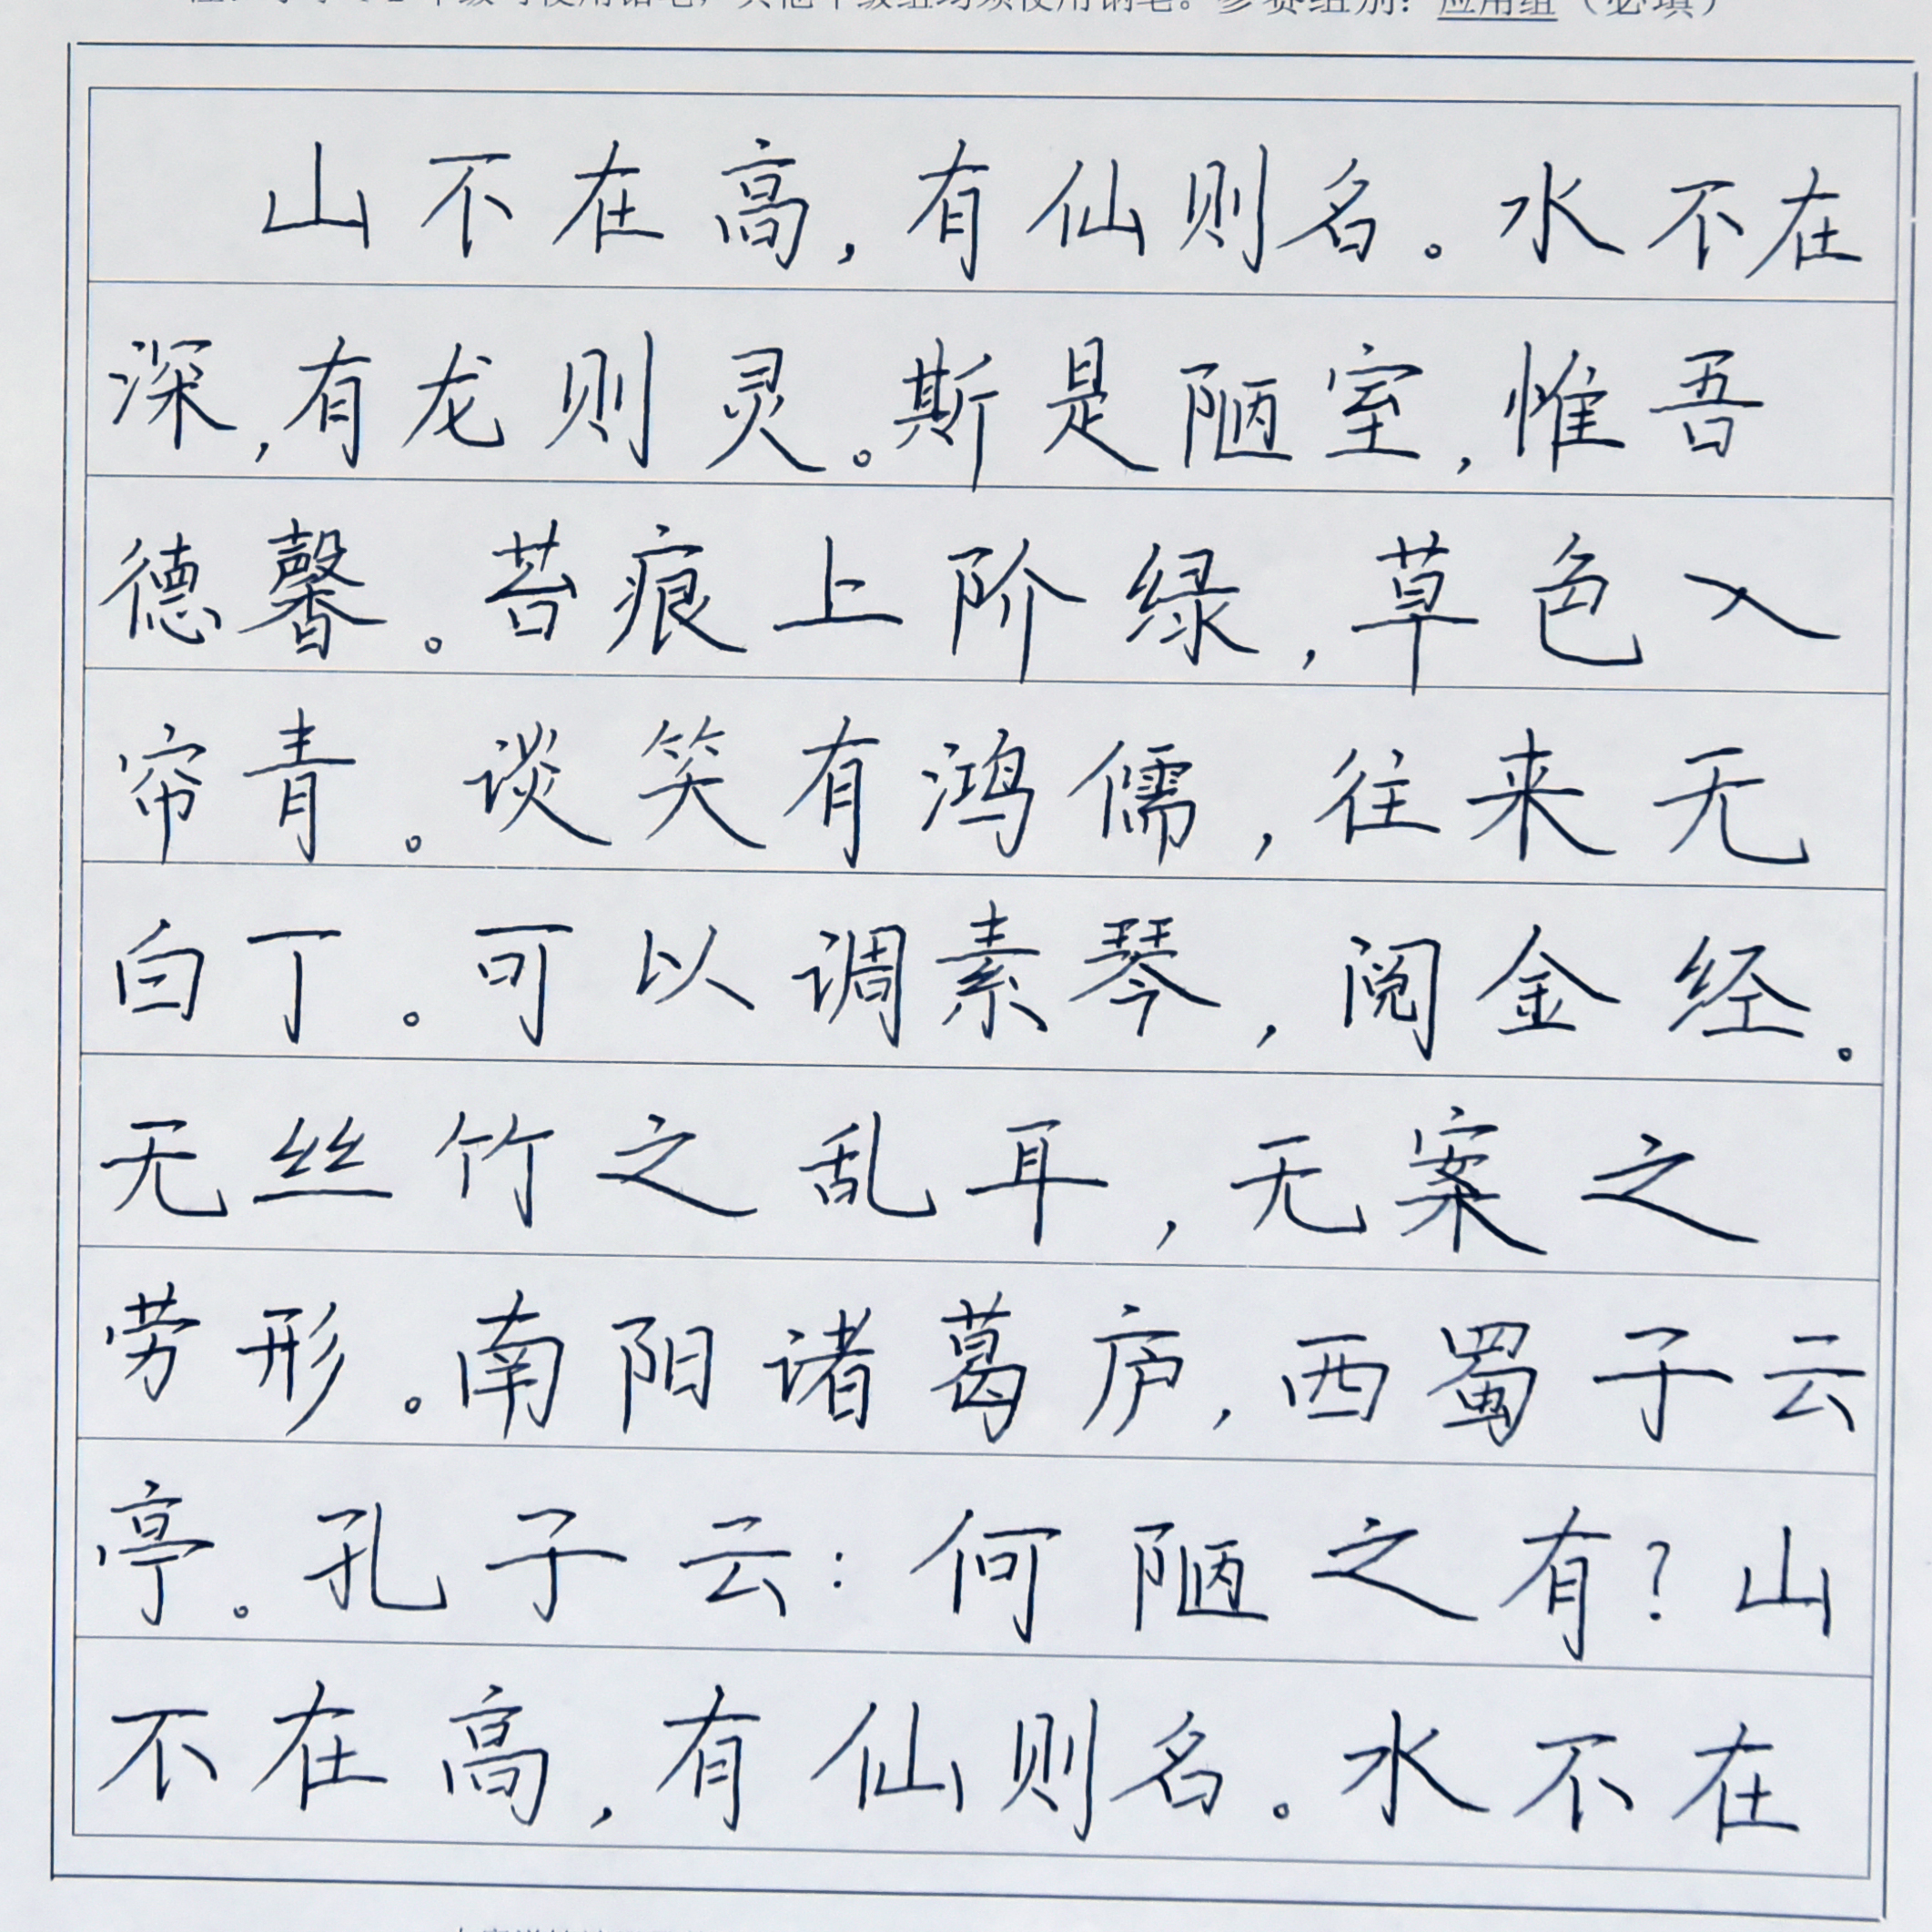 参赛组别：应用组（必填）
山不在高，有仙则名。水不在
深，有龙则灵。斯是陋室，惟吾
德馨。苔痕上阶绿，草色入
帘青。谈笑有鸿儒，往来无
白丁。可以调素琴，阅金经。
无丝竹之乱耳，无案之
劳形。南阳诸葛庐，西蜀子云
亭。孔子云：何陋之有？山
不在高，有仙则名。水不在